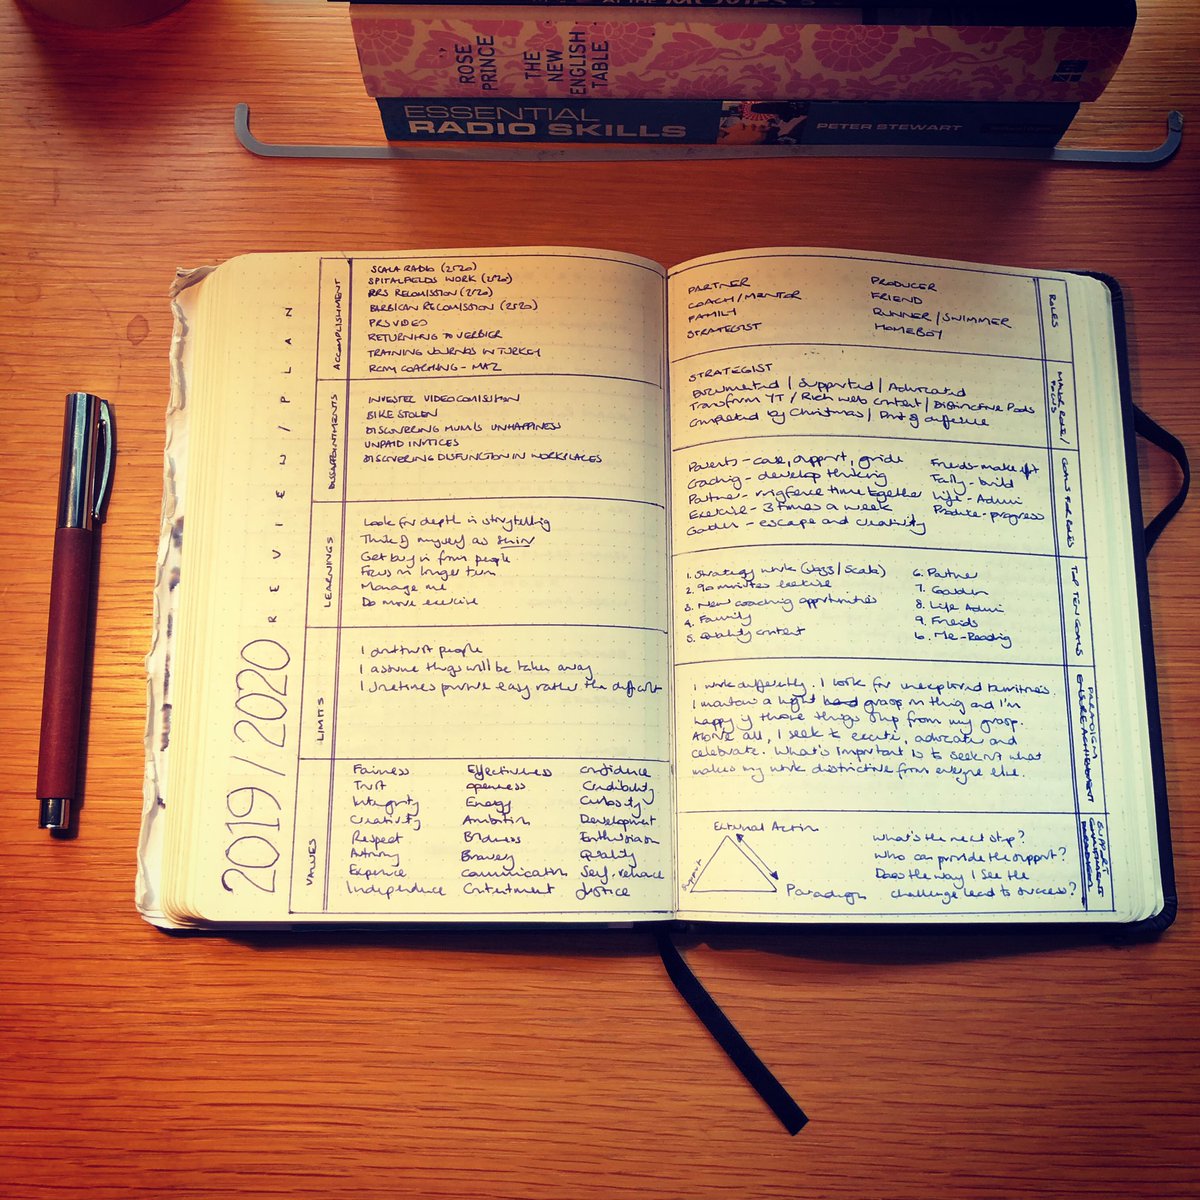 AT THE MOVIES
ROSE PRINCE
THE NEW ENGLISH TABLE
ESSENTIAL
RADIO SKILLS
PETER STEWART
2019/2020 REVIEW/PLAN
ACCOMPLISHMENT
SCALA RADIO (2520)
SPITALFIELDS WORK (2520)
RPS RECOMISSION (2520)
BARBICAN RECOMISSION (2520)
PRS VIDEO
RETURNING TO VERBIER
TRAINING JOURNOS IN TURKEY
RCM COACHING - MAZ
DISSAPOINTMENTS
INVESTEC VIDEO COMISSION
BIKE STOLEN
DISCOVERING MUM'S UNHAPPINESS
UNPAID INVOICES
DISCOVERING DISFUNCTION IN WORKPLACES
LEARNINGS
Look for depth in storytelling
Think of myself as thin
Get buy in from people
Focus on longer term
Manage me
Do more exercise
LIMITS
I don't trust people
I assume things will be taken away
I sometimes pursue easy rather the difficult
VALUES
Fairness Effectiveness Confidence
Trust Openness Credibility
Integrity Energy Curiosity
Creativity Ambition Development
Respect Boldness Enthusiasm
Autonomy Bravery Quality
Experience Communication Self-reliance
Independence Contentment Justice
ROLES
PARTNER PRODUCER
COACH/MENTOR FRIEND
FAMILY RUNNER/SWIMMER
STRATEGIST HOMEBOY
MAJOR ROLE/FOCUS
STRATEGIST
Documented / Supported / Advocated
Transform YT / Rich web content / Distinctive Pods
Completed by Christmas / Point of difference
GOALS FOR ROLES
Parents - care, support, guide Friends - make it
Coaching - develop thinking Tally - build
Partner - ringfence time together Life - Admin
Exercise - 3 times a week Produce - progress
Garden - escape and creativity
TOP TEN GOALS
1. Strategy work (Scala) 6. Partner
2. 90 minutes exercise 7. Garden
3. New coaching opportunities 8. Life Admin
4. Family 9. Friends
5. Quality content 6. Me - Reading
PARADIGM ENSURE ACHIEVEMENT
I work differently. I look for unexplored territories.
I maintain a light grasp on thing and I'm
happy if those things slip from my grasp.
Above all, I seek to excite, advocate and
celebrate. What's important is to seek out what
makes my work distinctive from everyone else.
SUPPORT
External Action What's the next step?
Support Who can provide the support?
Does the way I see the
Paradigm challenge lead to success?